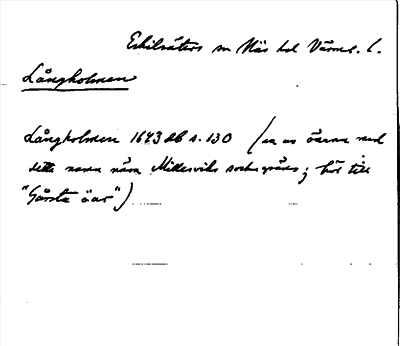 Eskilsäters sn Näs hd Värml. l.
Långholmen
Långholmen 1643 Jb s. 130 (en av öarna med
detta namn nära Millesviks sockengräns; hör till
"Gårsta öar")